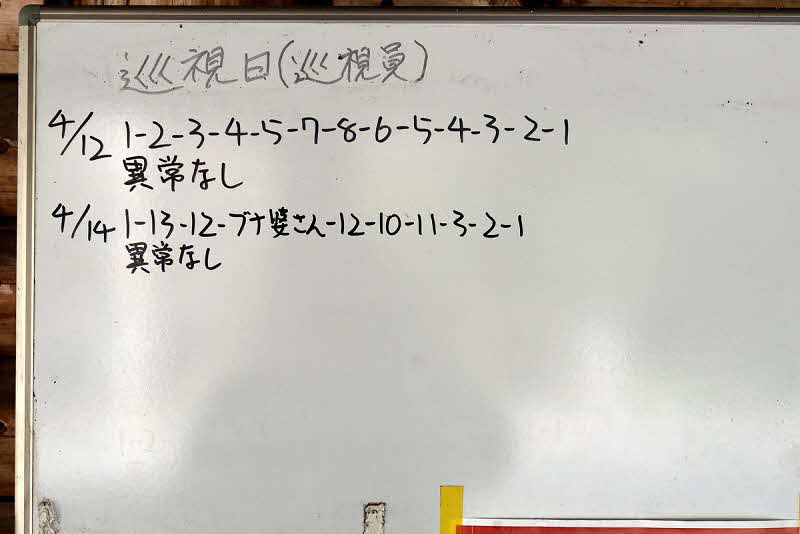 巡視日(巡視員)
4/12 1-2-3-4-5-7-8-6-5-4-3-2-1
異常なし
4/14 1-13-12-ブナ婆さん-12-10-11-3-2-1
異常なし